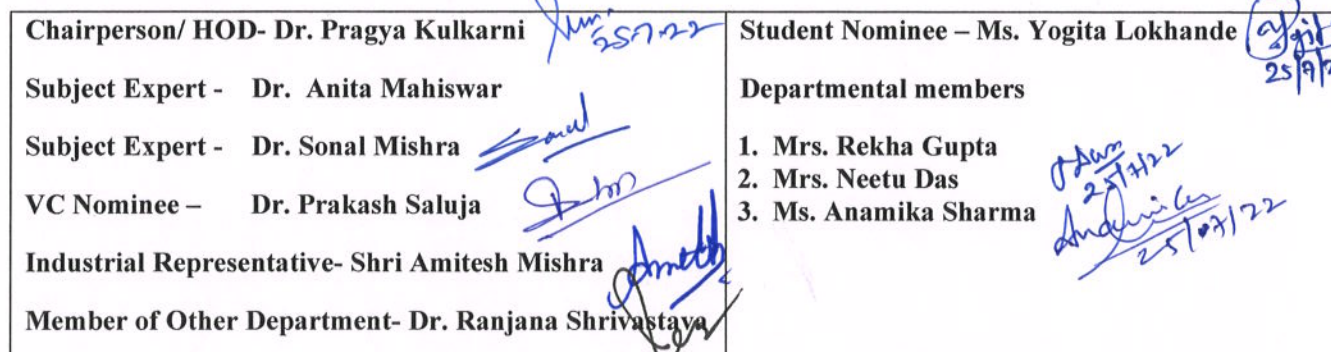 Chairperson/ HOD- Dr. Pragya Kulkarni
25.7.22
Subject Expert - Dr. Anita Mahiswar
Subject Expert - Dr. Sonal Mishra
Sonal
VC Nominee – Dr. Prakash Saluja
Industrial Representative- Shri Amitesh Mishra
Member of Other Department- Dr. Ranjana Shrivastava
Student Nominee – Ms. Yogita Lokhande
Departmental members
1. Mrs. Rekha Gupta
2. Mrs. Neetu Das
25/7/22
3. Ms. Anamika Sharma
Anamika
25/07/22